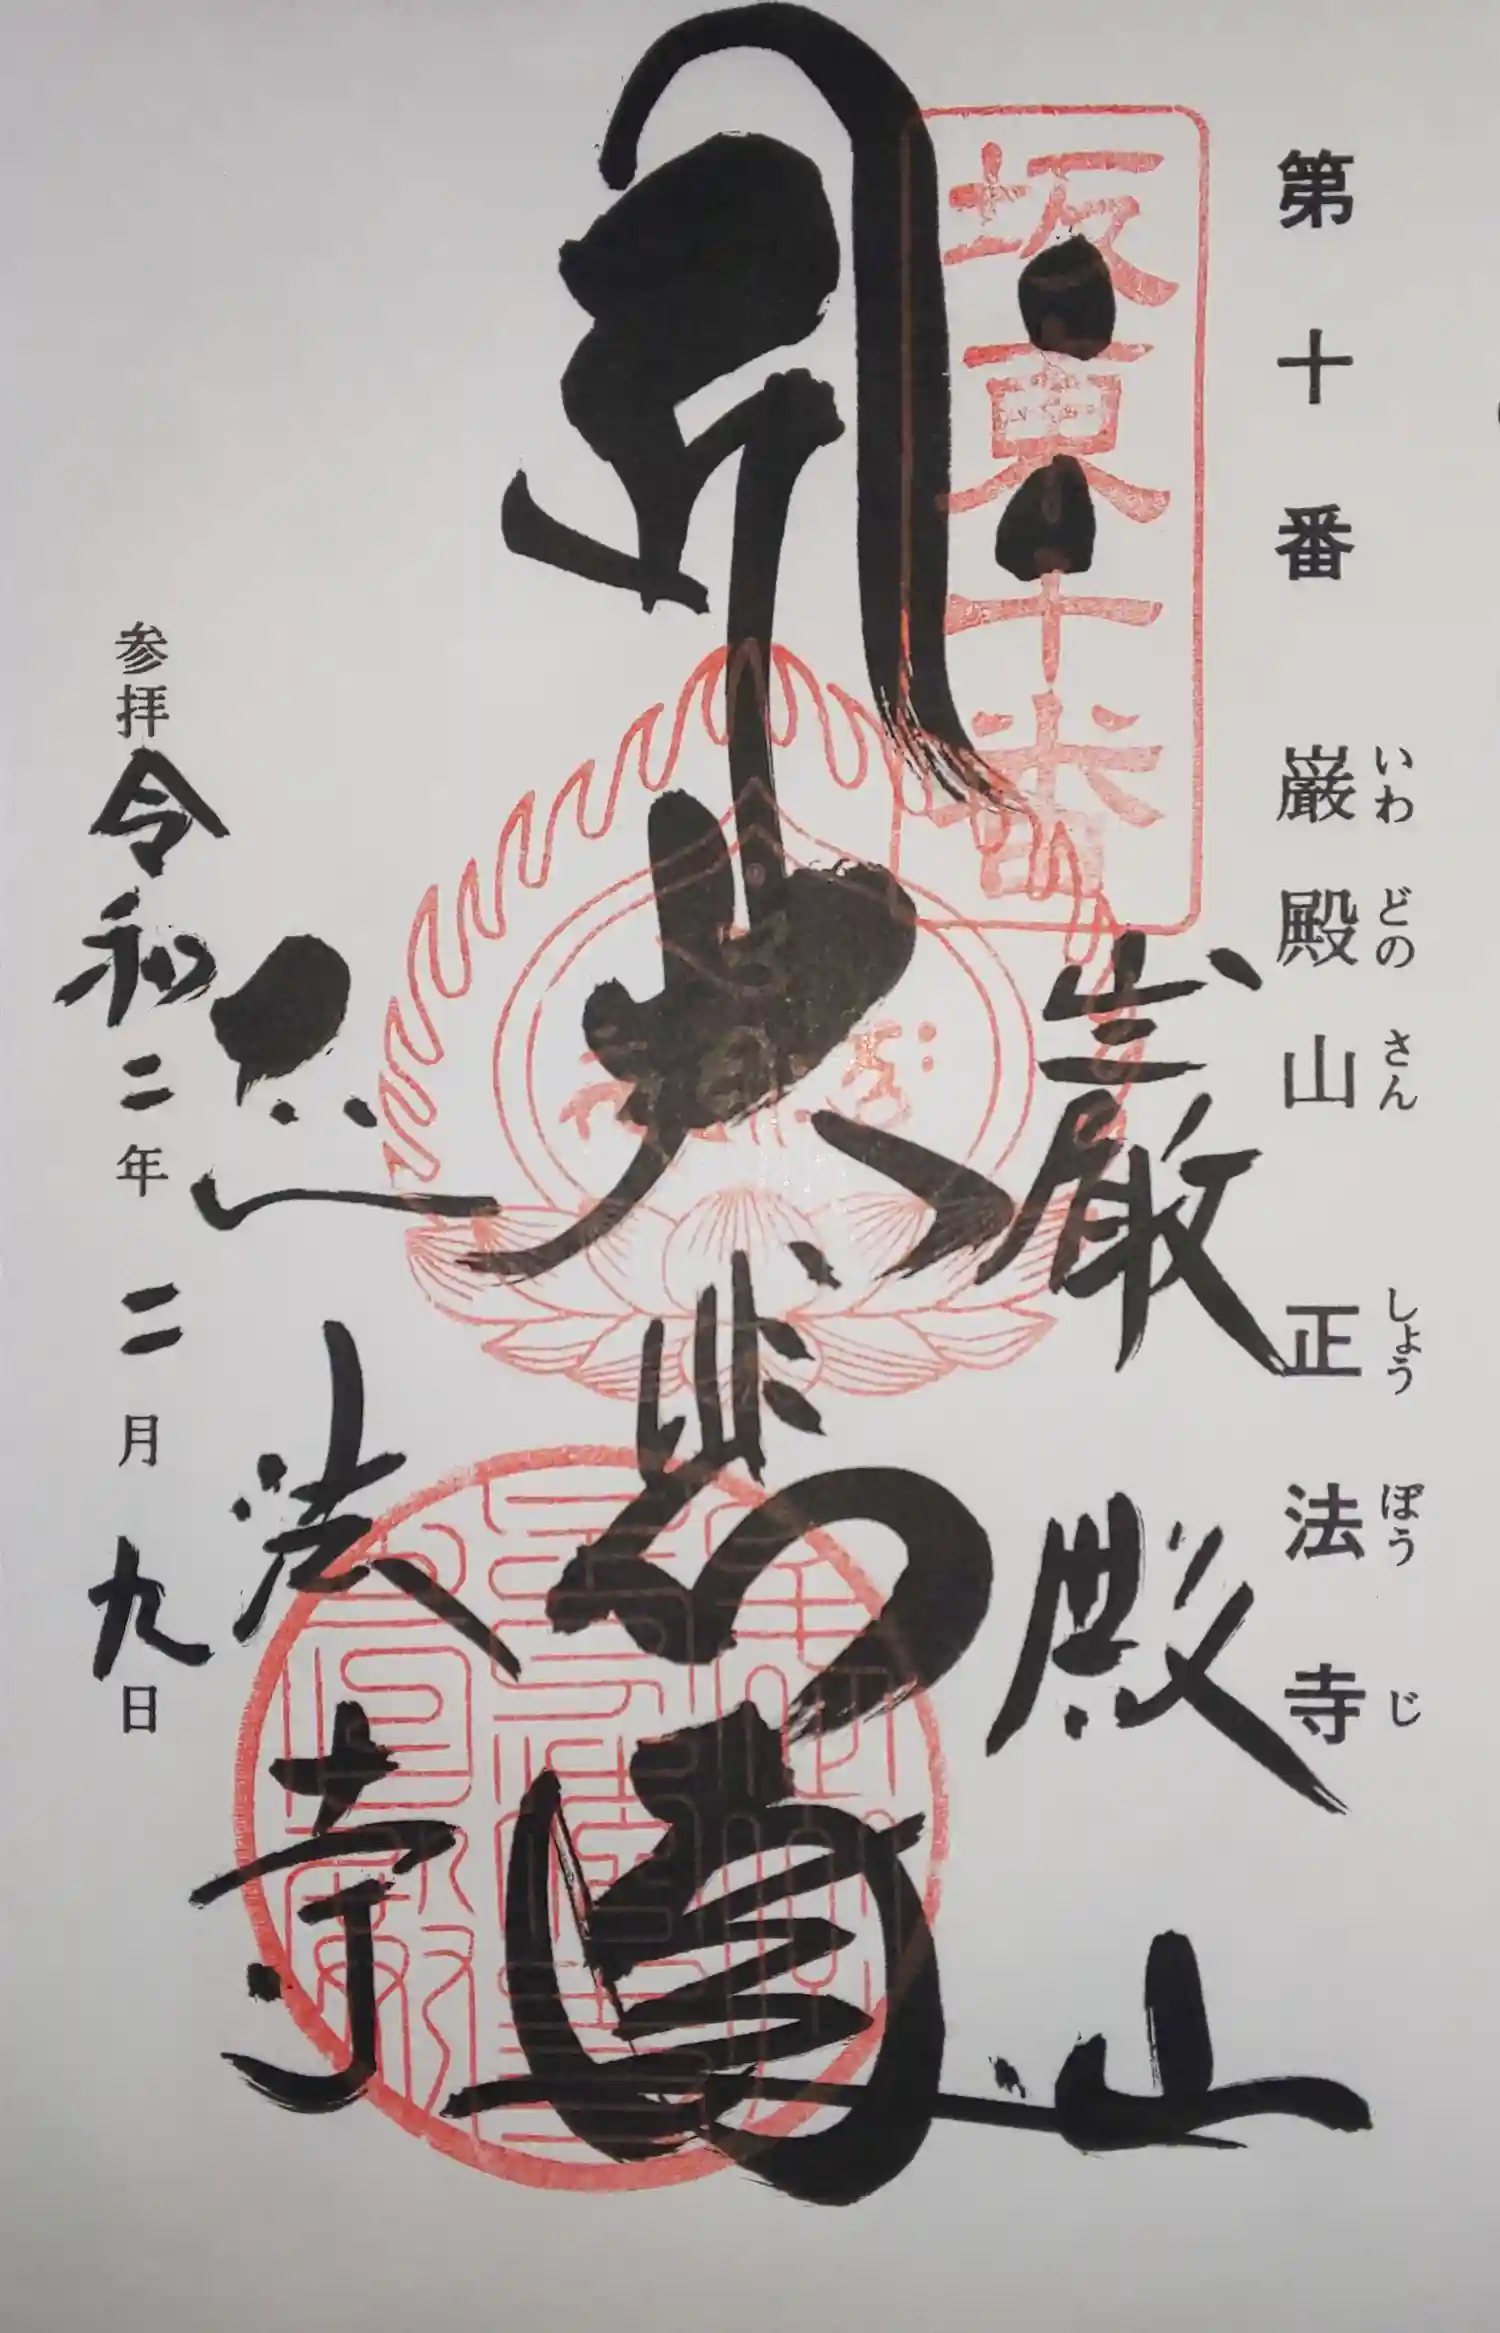 第十番 巌殿山 正法寺
いわ どの さん しょう ぼう じ
坂東十番
巌殿山
大悲
正法寺
参拝 令和二年二月九日